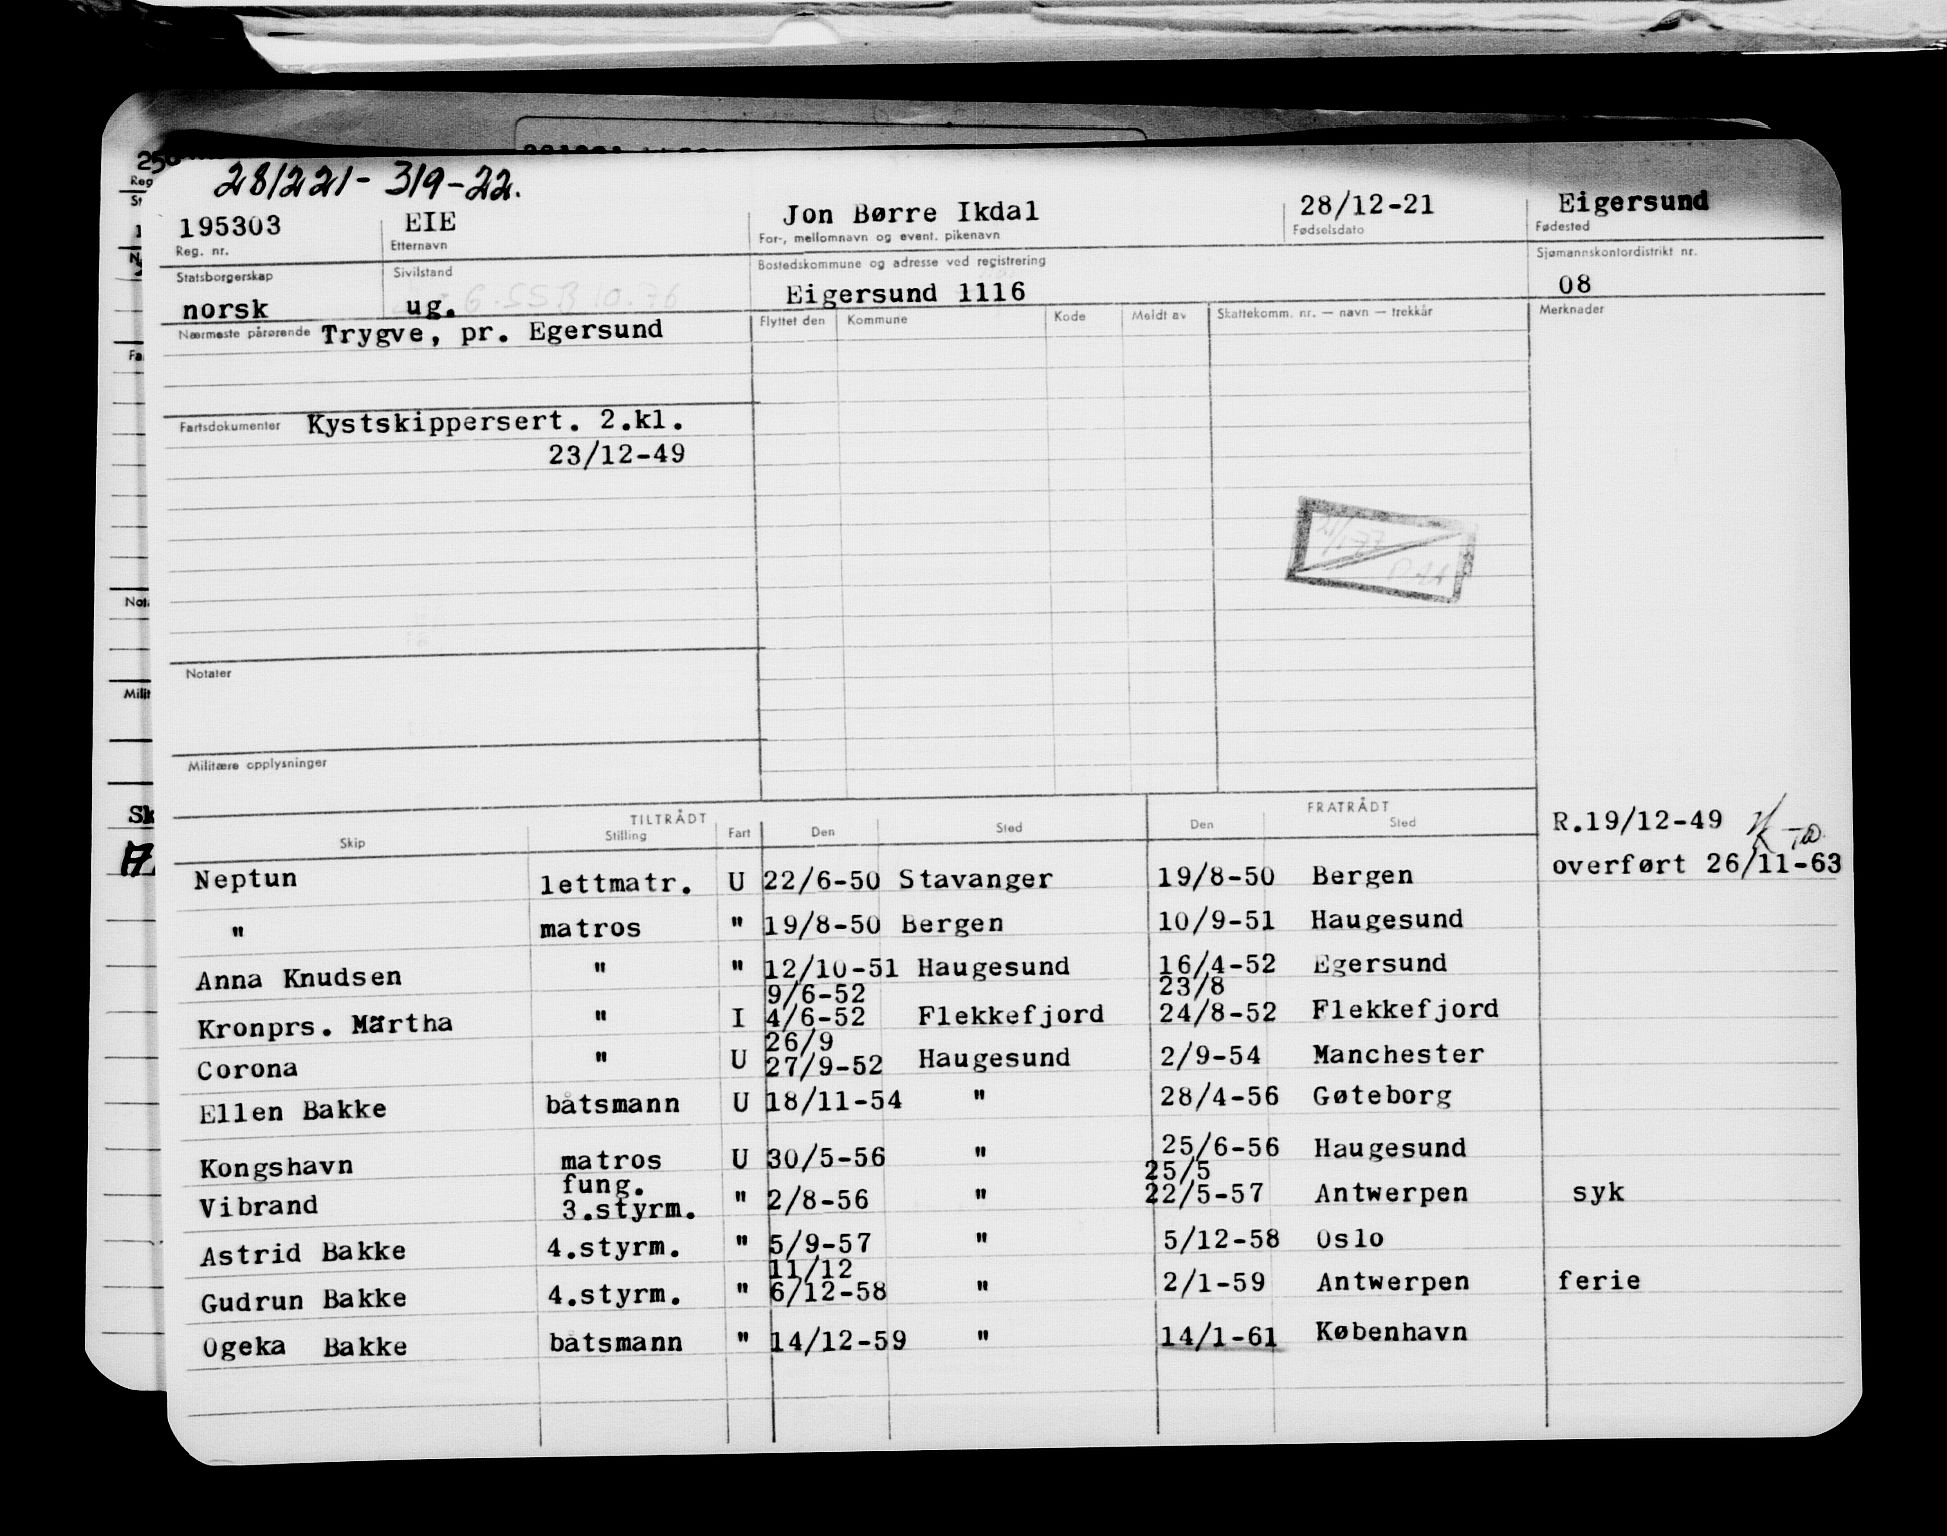 281221-319-22.
195303 EIE Jon Børre Ikdal 28/12-21 Eigersund
Reg. nr. Etternavn For-, mellomnavn og event. pikenavn Fødselsdato Fødested
Statsborgerskap Sivilstand Bostedskommune og adresse ved registrering Sjømannskontordistrikt nr.
norsk ug. Eigersund 1116 08
Nærmeste pårørende Trygve, pr. Egersund Flyttet den Kommune Kode Meldt av Skattekomm. nr. — navn — trekkår Merknader
Fartsdokumenter Kystskippersert. 2.kl.
23/12-49
Notater
Militære opplysninger
TILTRÅDT FRATRÅDT
Skip Stilling Fart Den Sted Den Sted
R.19/12-49
overført 26/11-63
Neptun lettmatr. U 22/6-50 Stavanger 19/8-50 Bergen
" matros " 19/8-50 Bergen 10/9-51 Haugesund
Anna Knudsen " " 12/10-51 Haugesund 16/4-52 Egersund
9/6-52 23/8
Kronprs. Märtha " I 4/6-52 Flekkefjord 24/8-52 Flekkefjord
26/9
Corona " U 27/9-52 Haugesund 2/9-54 Manchester
Ellen Bakke båtsmann U 18/11-54 " 28/4-56 Gøteborg
Kongshavn matros U 30/5-56 " 25/6-56 Haugesund
fung. 25/5
Vibrand 3.styrm. " 2/8-56 " 22/5-57 Antwerpen syk
Astrid Bakke 4.styrm. " 5/9-57 " 5/12-58 Oslo
11/12
Gudrun Bakke 4.styrm. " 6/12-58 " 2/1-59 Antwerpen ferie
Ogeka Bakke båtsmann " 14/12-59 " 14/1-61 København